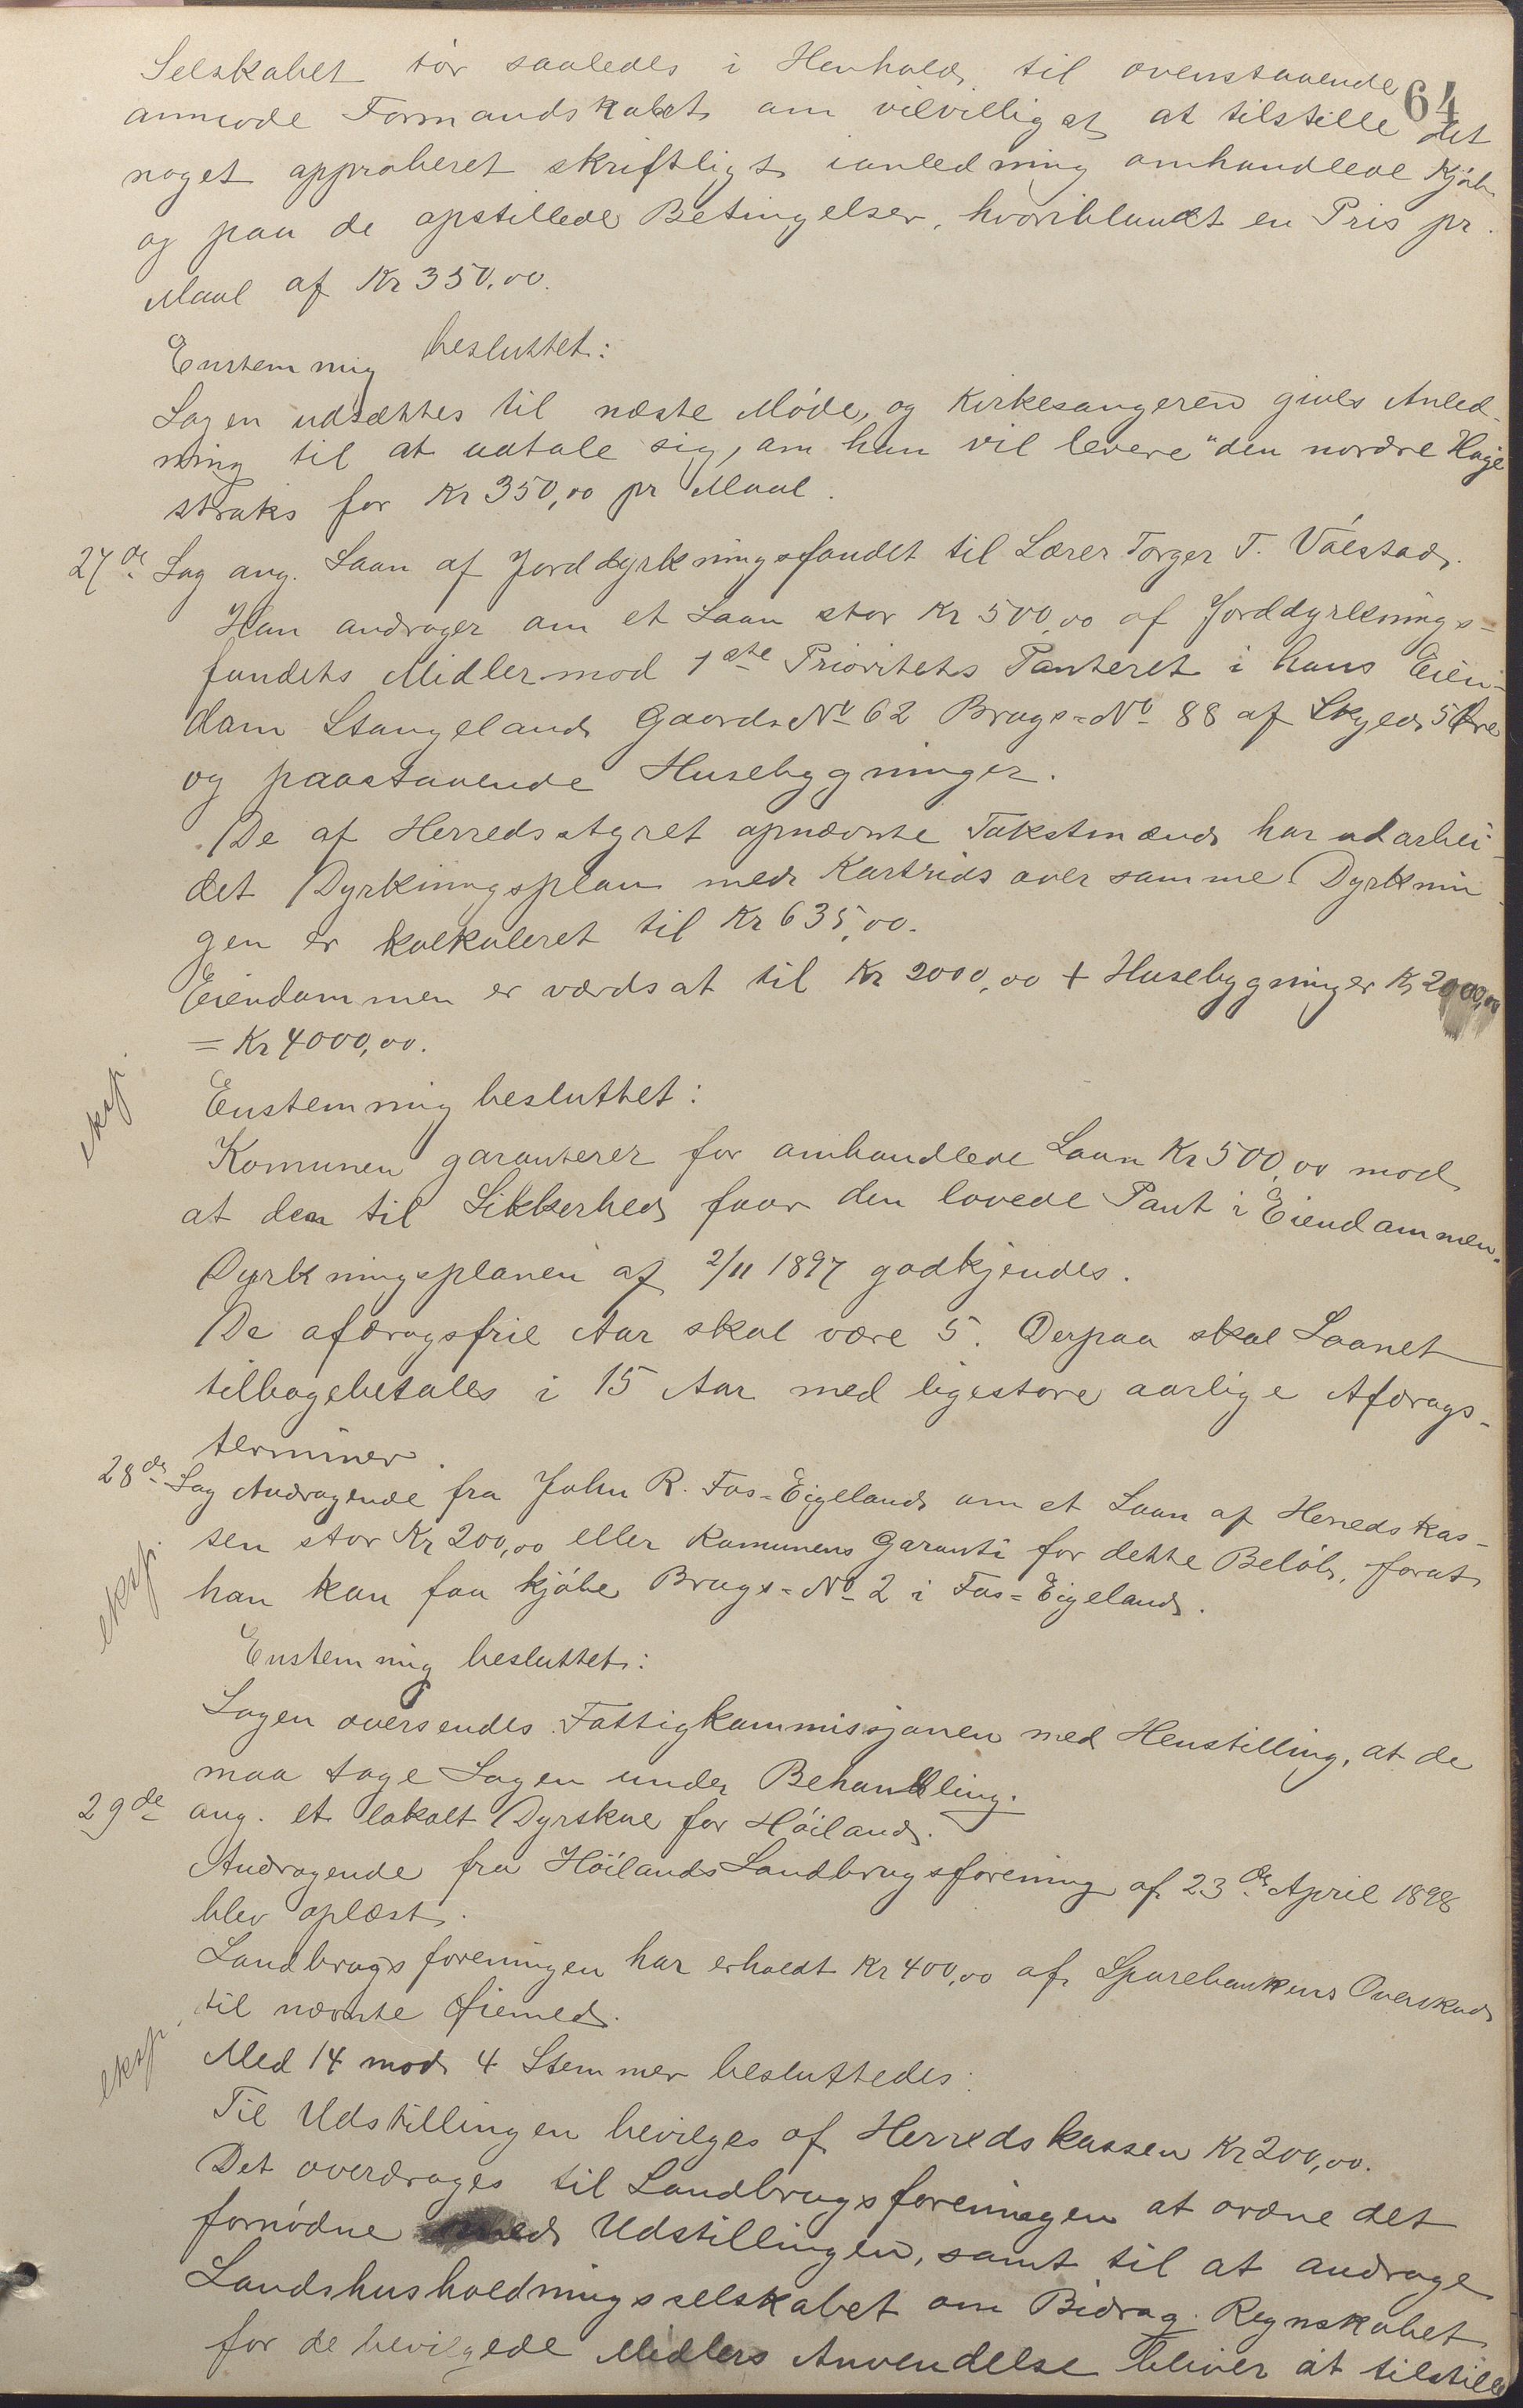 64
Selskabet tør saaledes i Henhold til ovenstaaende
anmode Formandskabet om velvilligst at tilstille det
noget approberet skriftligt ianledning omhandlede Kjøb
og paa de opstillede Betingelser, hvoriblandt en Pris pr.
Maal af Kr 350,00.
Enstemmig besluttet:
Sagen udsættes til næste Møde, og Kirkesangeren gives Anled-
ning til at udtale sig, om han vil levere "den nordre Hage
straks for Kr 350,00 pr Maal.
27de Sag ang. Laan af Jorddyrkningsfondet til Lærer Torger T.
Han andrager om et Laan stor Kr 500,00 af Jorddyrknings-
fondets Midler mod 1ste Prioritets Panteret i hans Eien-
dom Stangeland Gaards No 62 Brugs-No 88 af Skyld 5 Øre
og paastaaende Husebygninger.
De af Herredsstyret opnævnte Takstmænd har udarbei-
det Dyrkningsplan med Kartrids over samme. Dyrknin-
gen er kalkuleret til Kr 635,00.
Eiendommen er værdsat til Kr 2000,00 + Husebygninger Kr 2000,00
= Kr 4000,00.
eksp.
Enstemmig besluttet:
Komunen garanterer for omhandlede Laan Kr 500,00 mod
at den til Sikkerhed faar den lovede Pant i Eiendommen.
Dyrkningsplanen af 2/11 1897 godkjendes.
De afdragsfrie Aar skal være 5. Derpaa skal Laanet
tilbagebetales i 15 Aar med ligestore aarlige Afdrags-
terminer.
28de Sag Andragende fra John R. Fos-Eigeland om et Laan af Herredskas-
sen stor Kr 200,00 eller Komunens Garanti for dette Beløb, forat
eksp.
han kan faa kjøbe Brugs-No 2 i Fos-Eigeland.
Enstemmig besluttet:
Sagen oversendes Fattigkommissjonen med Henstilling, at de
maa tage Sagen under Behandling.
29de ang. et lokalt Dyrskue for Høiland.
Andragende fra Høilands Landbrugsforening af 23de April 1898
blev oplæst.
Landbrugsforeningen har erholdt Kr 400,00 af Sparebankens Overskud
til nævnte Øiemed.
eksp.
Med 14 mod 4 Stemmer besluttedes:
Til Udstillingen bevilges af Herredskassen Kr 200,00.
Det overdrages til Landbrugsforeningen at ordne det
fornødne med Udstillingen, samt til at andrage
Landshusholdningsselskabet om Bidrag. Regnskabet
for de bevilgede Midlers Anvendelse bliver at tilstille